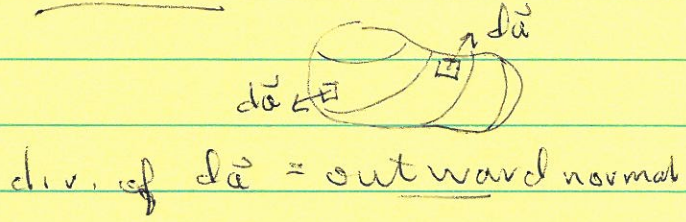 da⃗
da⃗
dir. of da⃗ = outward normal